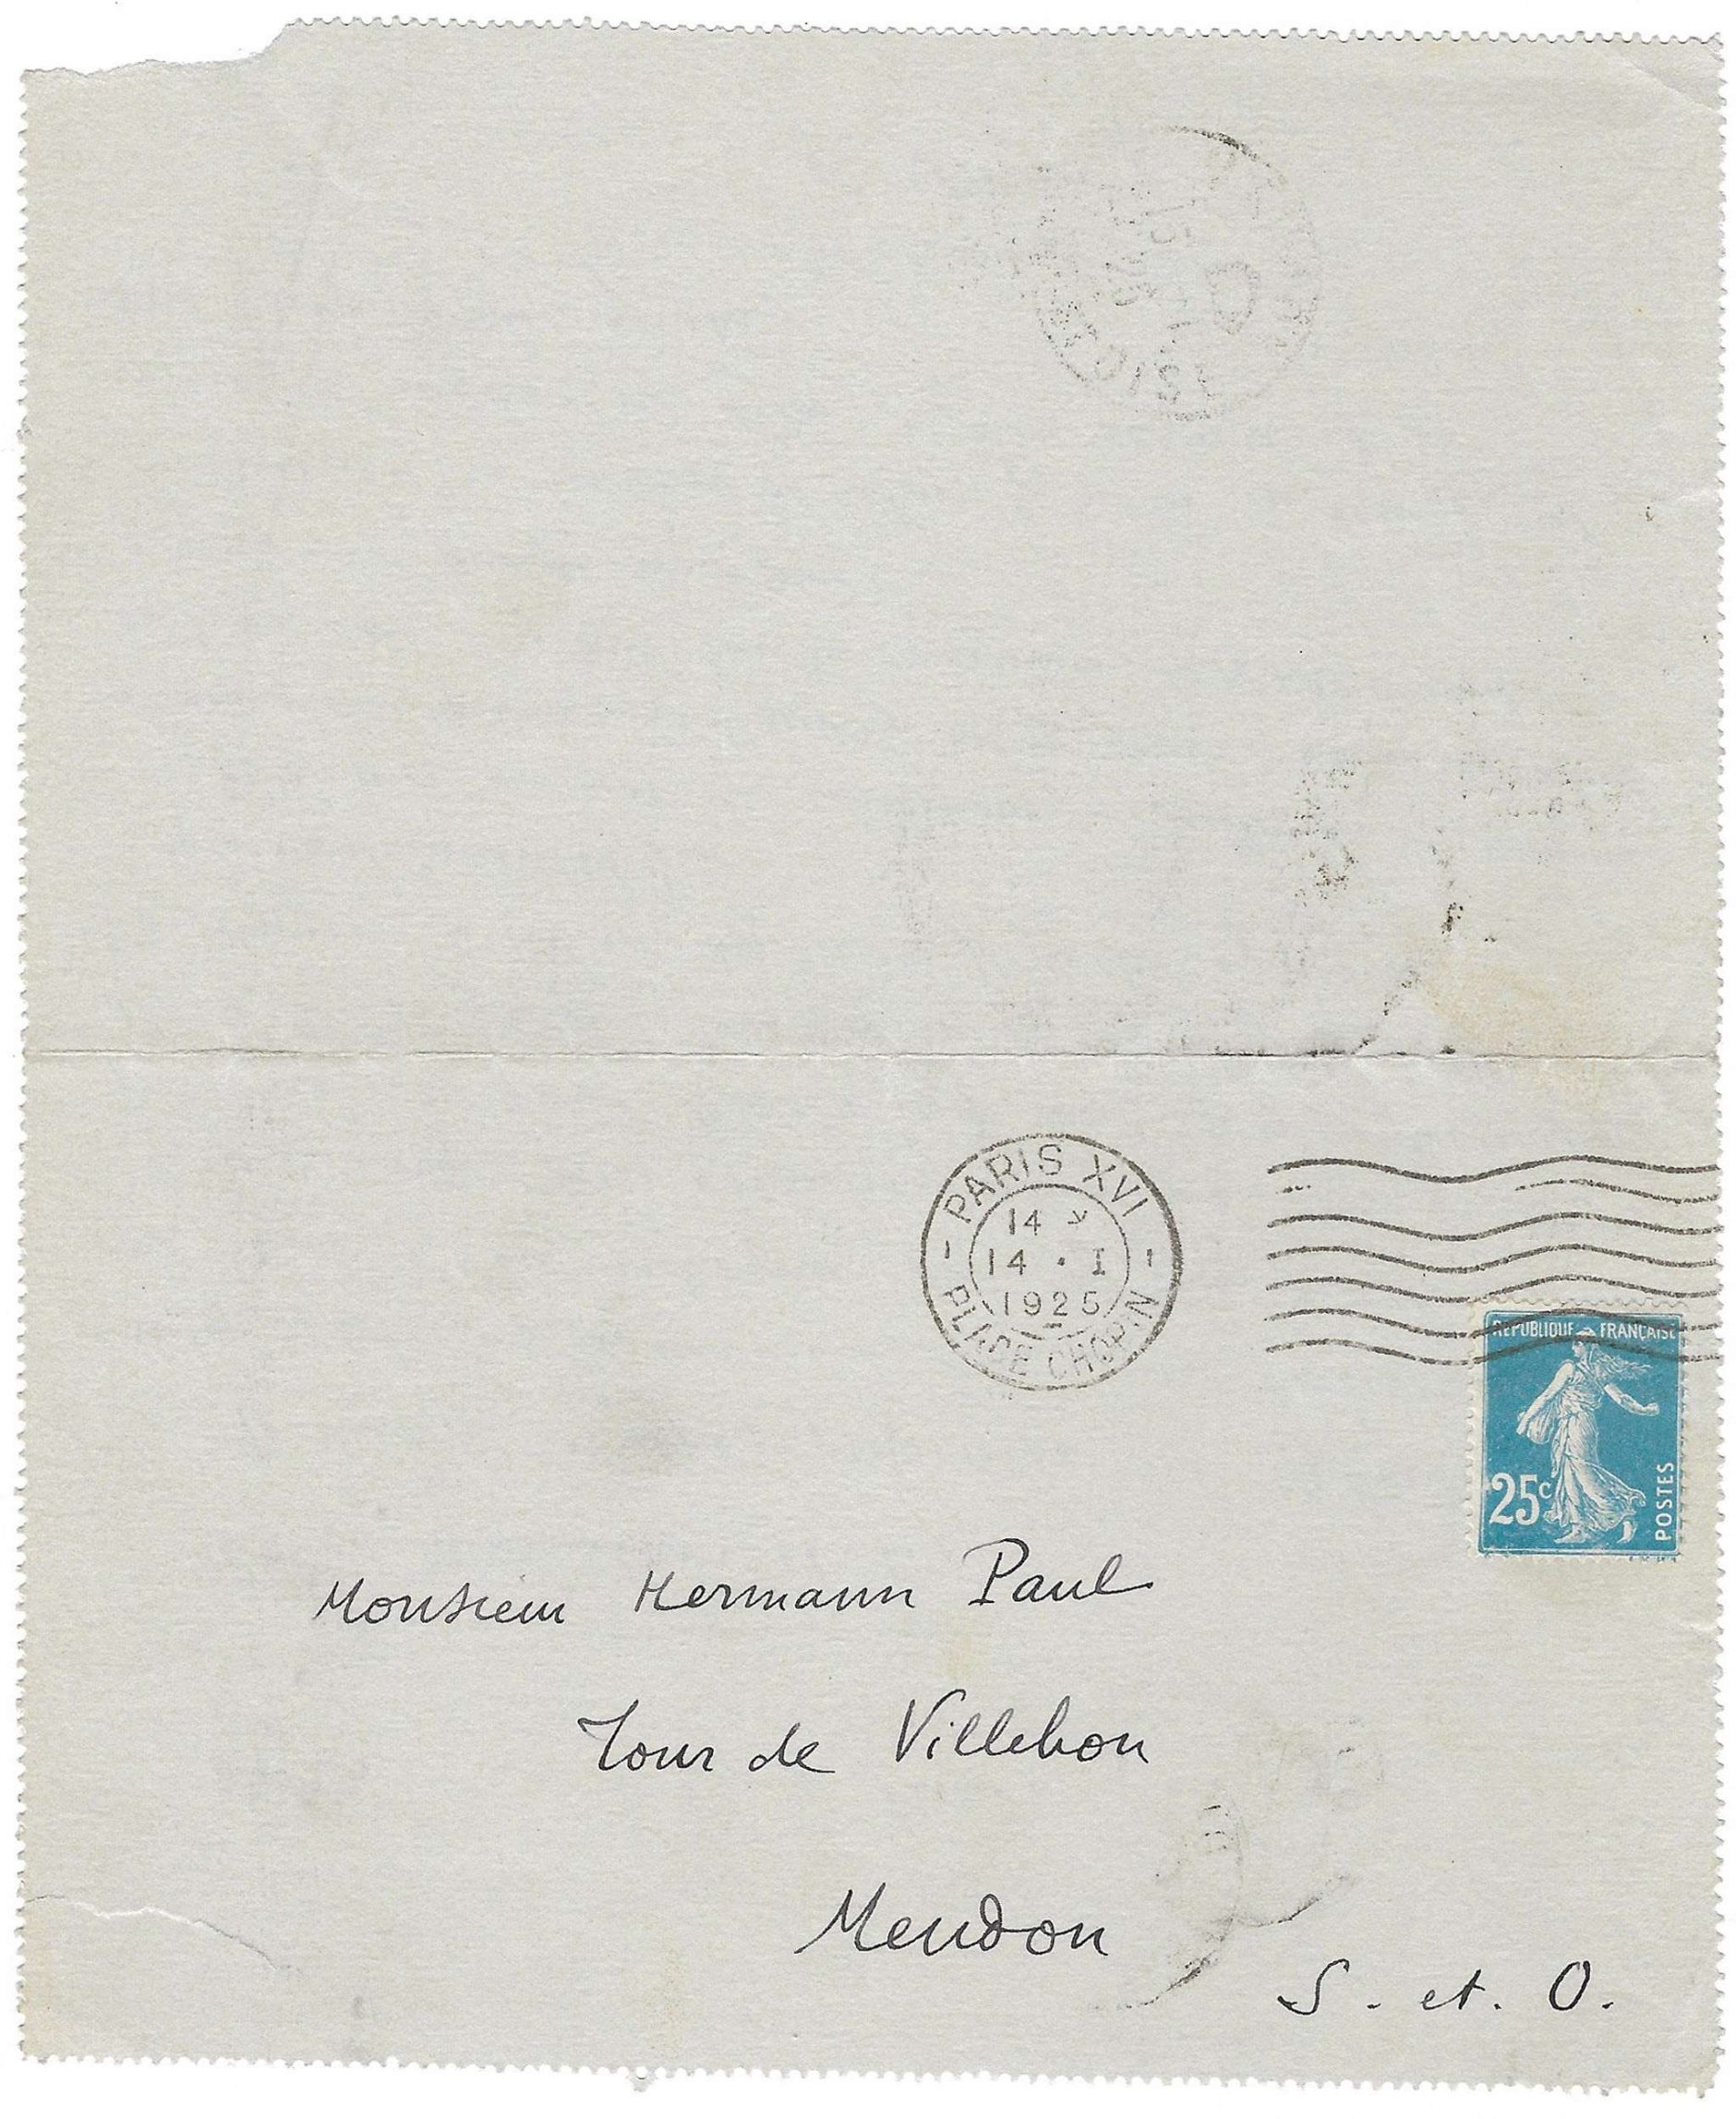 PARIS XVI
14
14 • I
1925
PLACE CHOPIN
REPUBLIQUE FRANÇAISE
25c
POSTES
Monsieur Hermann Paul
Tour de Villebon
Meudon
S. et. O.